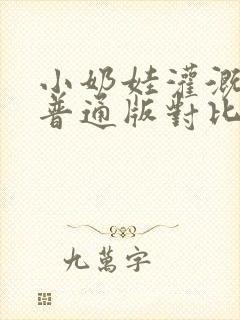 小奶娃灌溉
普通版對比
九萬字